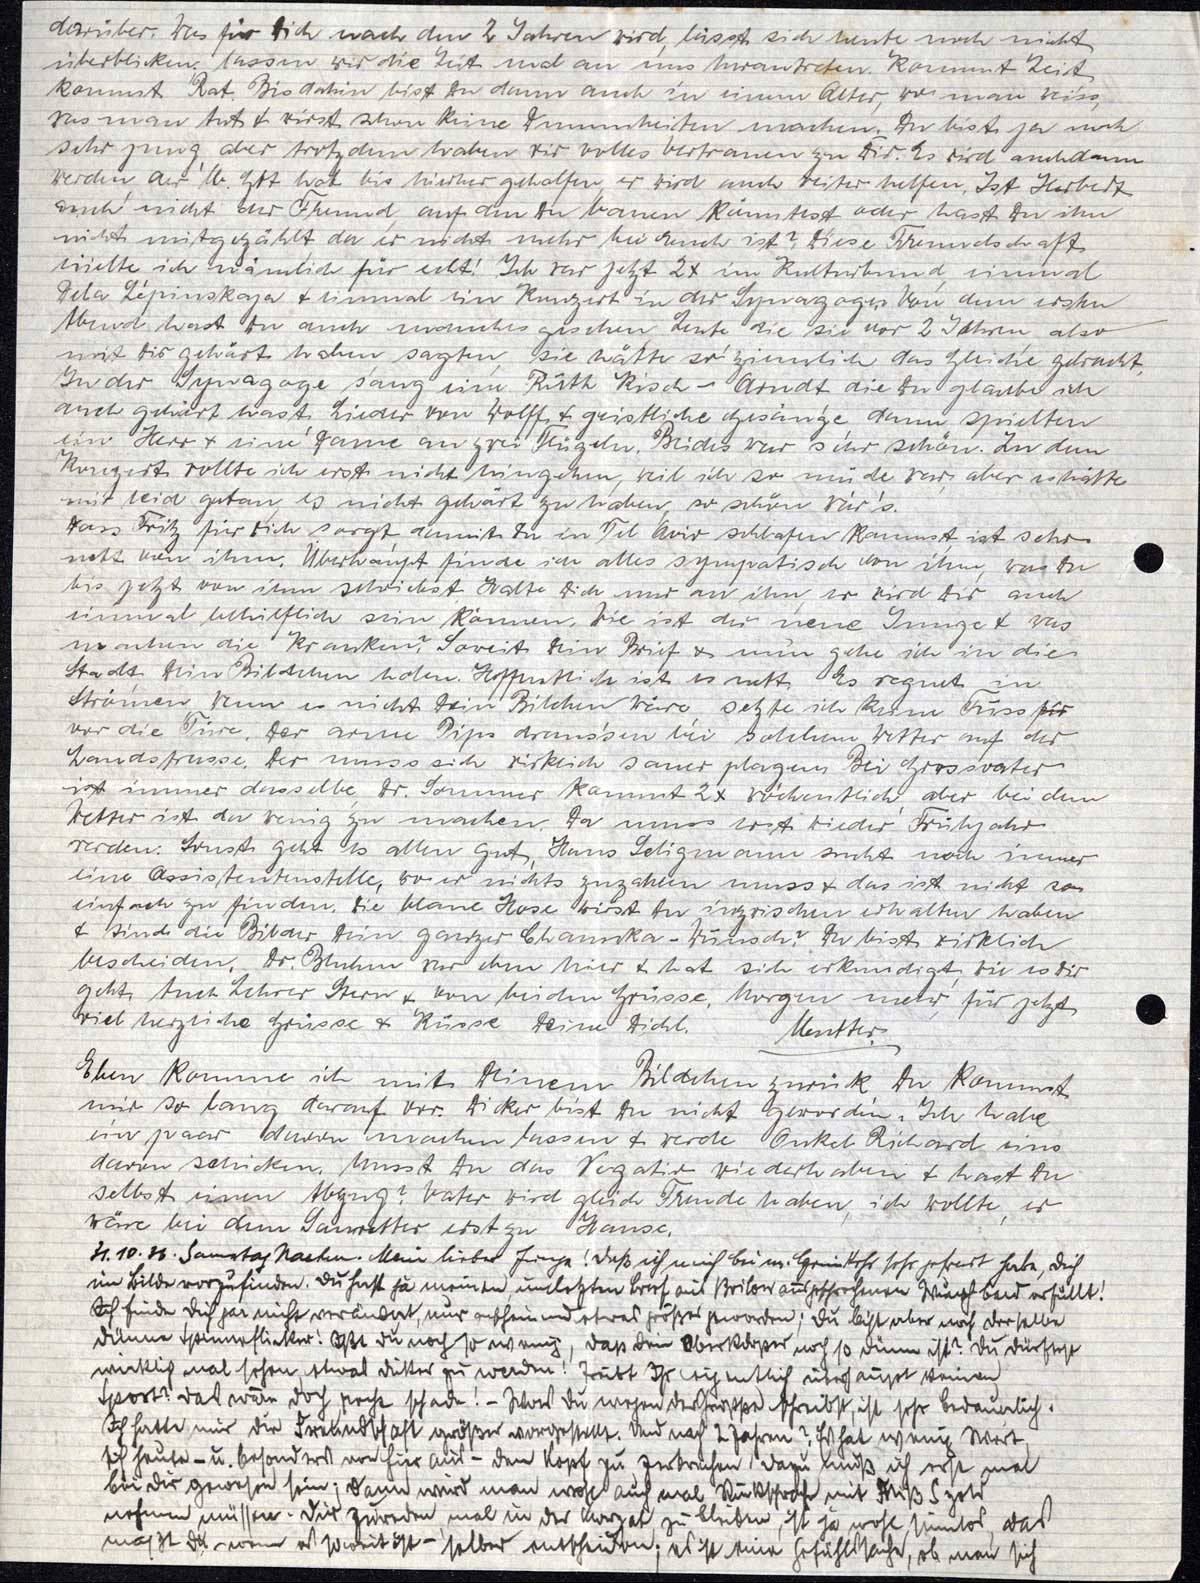 darüber. Was für Dich nach den 2 Jahren wird, lässt sich heute noch nicht
überblicken, lassen wir die Zeit mal an uns herantreten. Kommt Zeit
kommt Rat. Bis dahin bist Du dann auch in einem Alter, wo man weiss,
was man tut & wirst schon keine Dummheiten machen. Du bist ja noch
sehr jung, aber trotzdem haben wir volles Vertrauen zu Dir. Es wird auch dann
werden, der lb. Gott hat bis hierher geholfen, er wird auch weiter helfen. Ist Herbert
auch nicht der Freund, auf den Du bauen könntest oder hast Du ihn
nicht mitgezählt da er nicht mehr bei Euch ist? Diese Freundschaft
hielte ich nämlich für echt! Ich war jetzt 2x im Kulturbund, einmal
Dela Lipinskaja & einmal ein Konzert in der Synagoge. Von dem ersten
Abend hast Du auch manches gesehen, Leute die sie vor 2 Jahren also
mit Dir gehört haben sagten, sie hätte so ziemlich das Gleiche gebracht.
In der Synagoge sang eine Ruth Kisch - Arndt die Du glaube ich
auch gehört hast Lieder von Wolff & geistliche Gesänge dann spielten
ein Herr & eine Dame an zwei Flügeln. Beides war sehr schön. In dem
Konzert wollte ich erst nicht hingehen, weil ich so müde war, aber es hätte
mir leid getan, es nicht gehört zu haben, so schön wär's.
Dass Fritz für Dich sorgt damit Du in Tel Aviv schlafen kannst, ist sehr
nett von ihm. Überhaupt finde ich alles sympatisch von ihm, was Du
bis jetzt von ihm schriebst. Halte Dich nur an ihn, er wird Dir auch
einmal behilflich sein können. Wie ist der neue Junge & was
machen die Kranken? Soweit Dein Brief & nun gehe ich in die
Stadt Dein Bildchen holen. Hoffentlich ist es nett. Es regnet in
Strömen, wenn es nicht Dein Bildchen wäre, setzte ich keinen Fuss für
vor die Türe. Der arme Pips draussen bei solchem Wetter auf der
Landstrasse. Der muss sich wirklich sauer plagen. Bei Grossvater
ist immer dasselbe, Dr. Sommer kommt 2x wöchentlich, aber bei dem
Wetter ist da wenig zu machen. Da muss erst wieder Frühjahr
werden. Sonst geht es allen gut, Hans Seligmann sucht noch immer
eine Assistentenstelle, wo er nichts zuzahlen muss & das ist nicht so
einfach zu finden. Die blaue Hose wirst Du inzwischen erhalten haben
& sind die Bilder Dein ganzer Chanuka-Wunsch? Du bist wirklich
bescheiden. Dr. Bluhm war eben hier & hat sich erkundigt, wie es Dir
geht. Auch Lehrer Stern & von beiden Grüsse. Morgen mehr, für jetzt
viel herzliche Grüsse & Küsse Deine Dichl.
Mutter.
Eben komme ich mit Deinem Bildchen zurück. Du kommst
mir so lang darauf vor. Dicker bist Du nicht geworden. Ich habe
ein paar davon machen lassen & werde Onkel Richard eins
davon schicken. Musst Du das Negativ wiederhaben & hast Du
selbst einen Abzug? Vater wird gleich Freude haben, ich wollte, er
wäre bei dem Sauwetter erst zu Hause.
31.10.36. Samstag Nachm. Mein lieber Junge! Daß ich mich bei m. Heimkehr sehr gefreut habe, Dich
im Bilde vorzufinden. Du hast ja meinen im letzten Brief aus Brilon ausgesprochenen Wunsch bald erfüllt!
Ich finde Dich gar nicht verändert, nur anscheinend etwas größer geworden; Du bist aber noch derselbe
dünne Spinneflicker! Ißt Du noch so wenig, daß Dein Oberkörper noch so dünn ist? Du dürftest
wirklich mal sehen, etwas dicker zu werden! Treibt Ihr eigentlich überhaupt keinen
Sport? Das wäre doch recht schade! - Was Du wegen der Gruppe schreibst, ist sehr bedauerlich.
Ich hatte mir die Freundschaft größer vorgestellt. Und nach 2 Jahren? Es hat wenig Wert,
sich heute - u. besonders von hier aus - den Kopf zu zerbrechen! Dazu muß ich erst mal
bei Dir gewesen sein; dann wird man wohl auch mal Rücksprache mit Miß Szold
nehmen müssen. Dir zureden mal in der zu bleiben, ist ja wohl sinnlos, das
mußt Du - wenn es soweit ist - selber entscheiden; es ist eine Gefühlssache, ob man sich